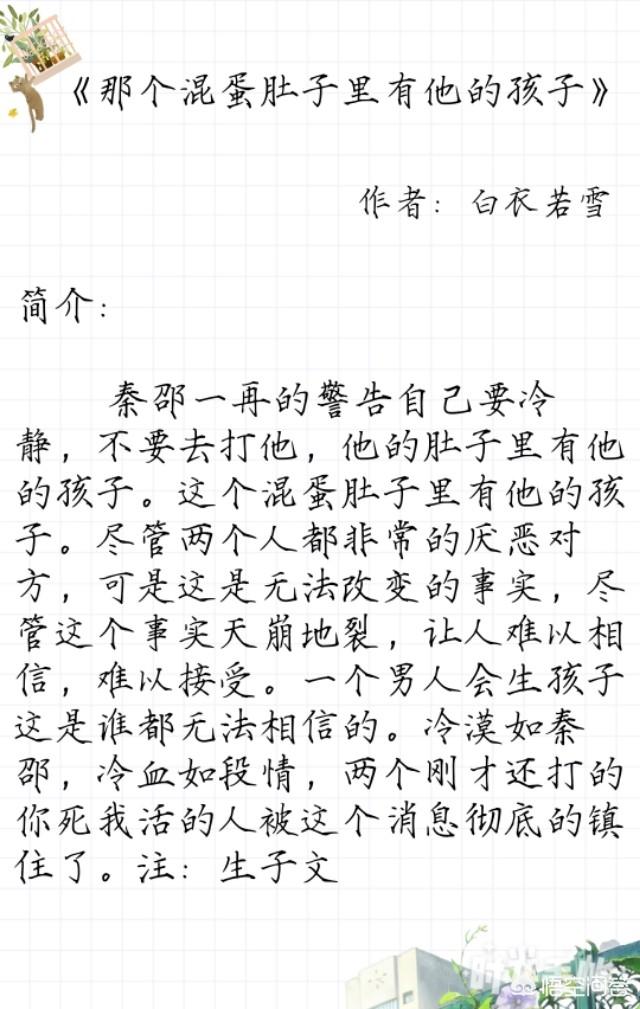 《那个混蛋肚子里有他的孩子》
作者：白衣若雪
简介：
秦邵一再的警告自己要冷
静，不要去打他，他的肚子里有他
的孩子。这个混蛋肚子里有他的孩
子。尽管两个人都非常的厌恶对
方，可是这是无法改变的事实，尽
管这个事实天崩地裂，让人难以相
信，难以接受。一个男人会生孩子
这是谁都无法相信的。冷漠如秦
邵，冷血如段情，两个刚才还打的
你死我活的人被这个消息彻底的镇
住了。注：生子文
悟空问答